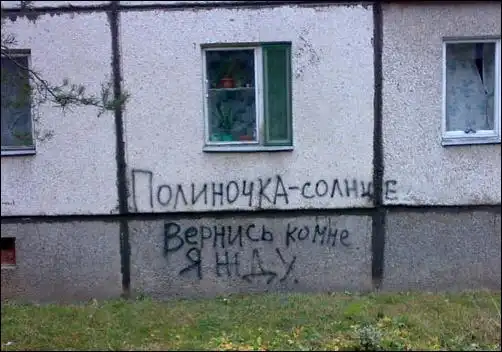 Полиночка-солнце
Вернись ко мне
Я жду.